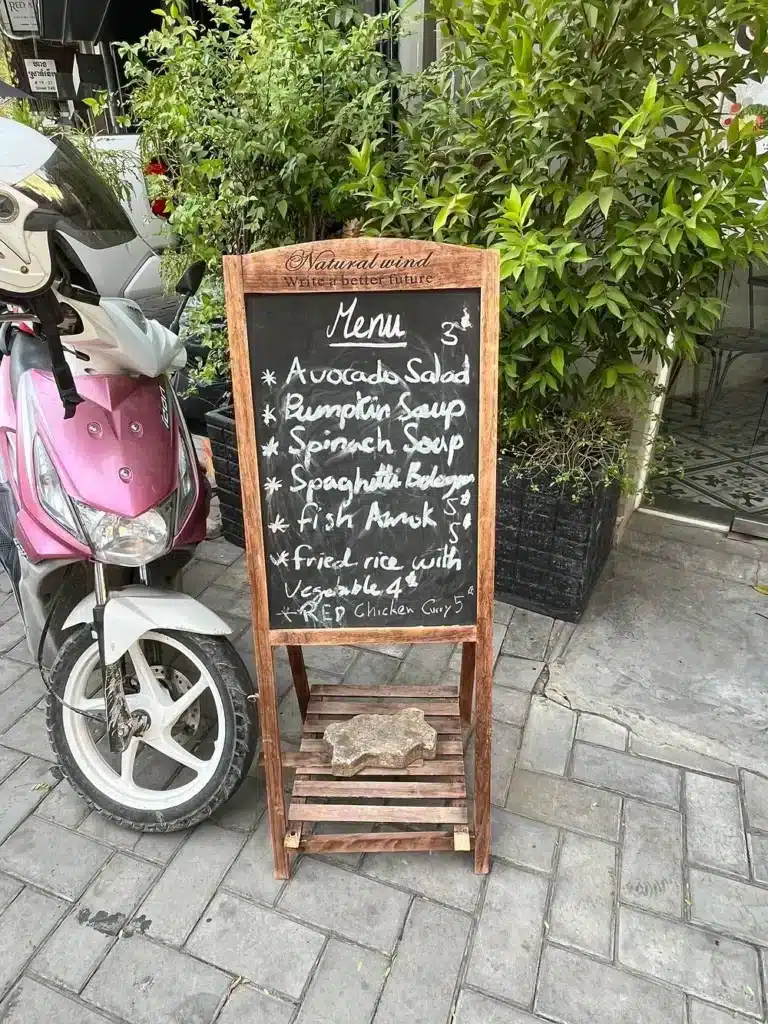 RED
# 19 - 21
Street 240
Natural wind
Write a better future
Menu
3$
* Avocado Salad
* Pumpkin Soup
* Spinach Soup
* Spaghetti
5$
* fish Amok 5$
* fried rice with
Vegetable 4$
* RED Chicken Curry 5$